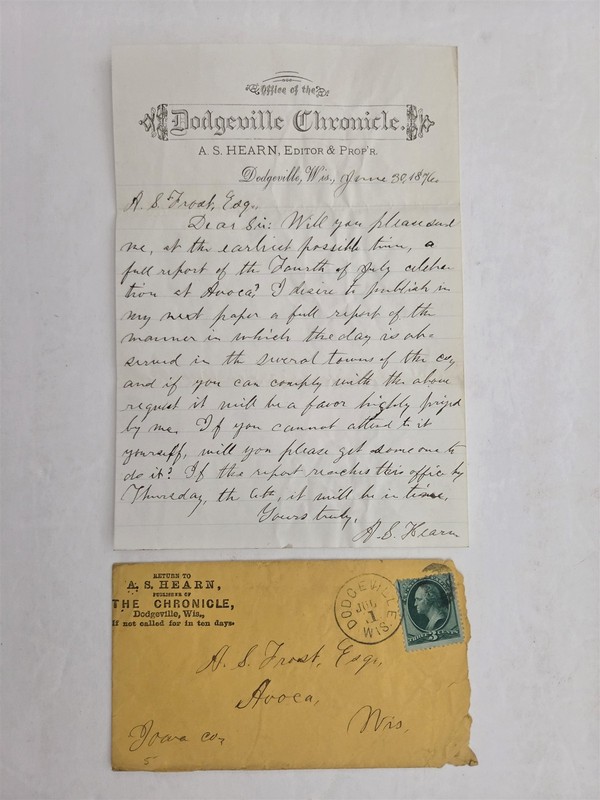 Office of the
Dodgeville Chronicle.
A. S. HEARN, EDITOR & PROP'R.
Dodgeville, Wis., June 30, 1876
A. S. Frost, Esq.,
Dear Sir: Will you please send
me, at the earliest possible time, a
full report of the Fourth of July celebra-
tion at Avoca? I desire to publish in
my next paper a full report of the
manner in which the day is ob-
served in the several towns of the co,
and if you can comply with the above
request it will be a favor highly prized
by me. If you cannot attend to it
yourself, will you please get some one to
do it? If the report reaches this office by
Thursday, the 6th, it will be in time.
Yours truly,
A. S. Hearn
RETURN TO
A. S. HEARN,
PUBLISHER OF
THE CHRONICLE,
Dodgeville, Wis.,
If not called for in ten days.
DODGEVILLE
1
WIS.
THREE CENTS
A. S. Frost, Esq.,
Avoca,
Wis,
Iowa co,
5